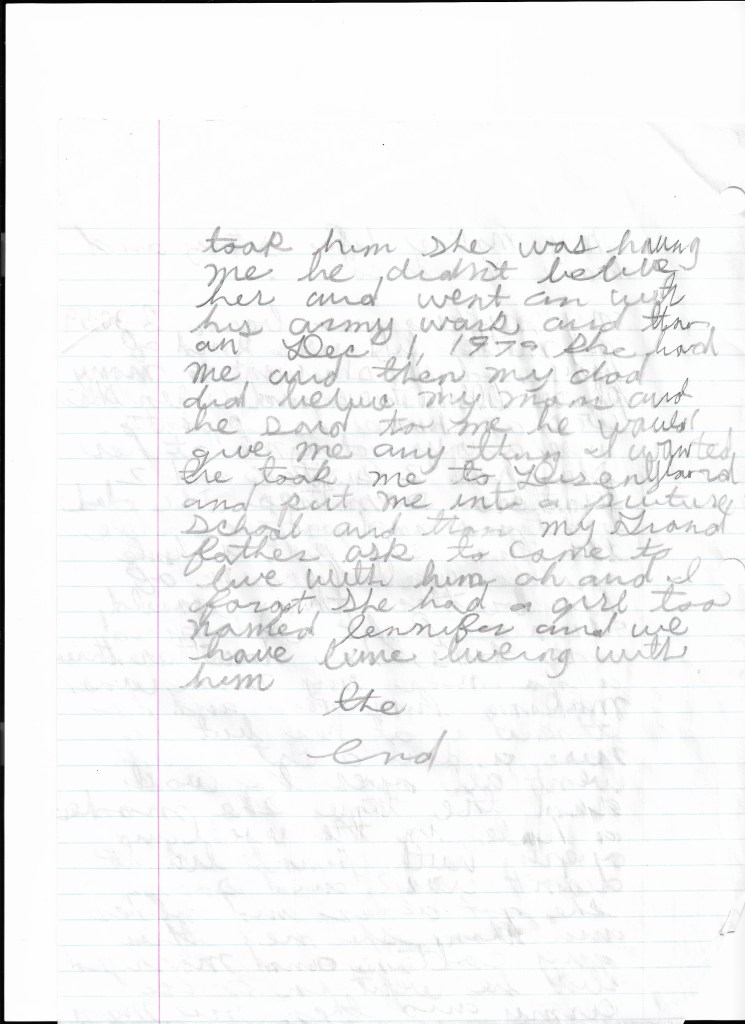 took him she was having
me he didn't belive
her and went on with
his army work and then
on Dec 1, 1979 she had
me and then my dad
did belive my mom and
he said to me he would
give me any thing I wanted
he took me to Disenyland
and put me into a
school and then my Grand
father ask to come to
live with him oh and I
forgot she had a girl too
named Jennifer and we
have liveing with
him
the
end